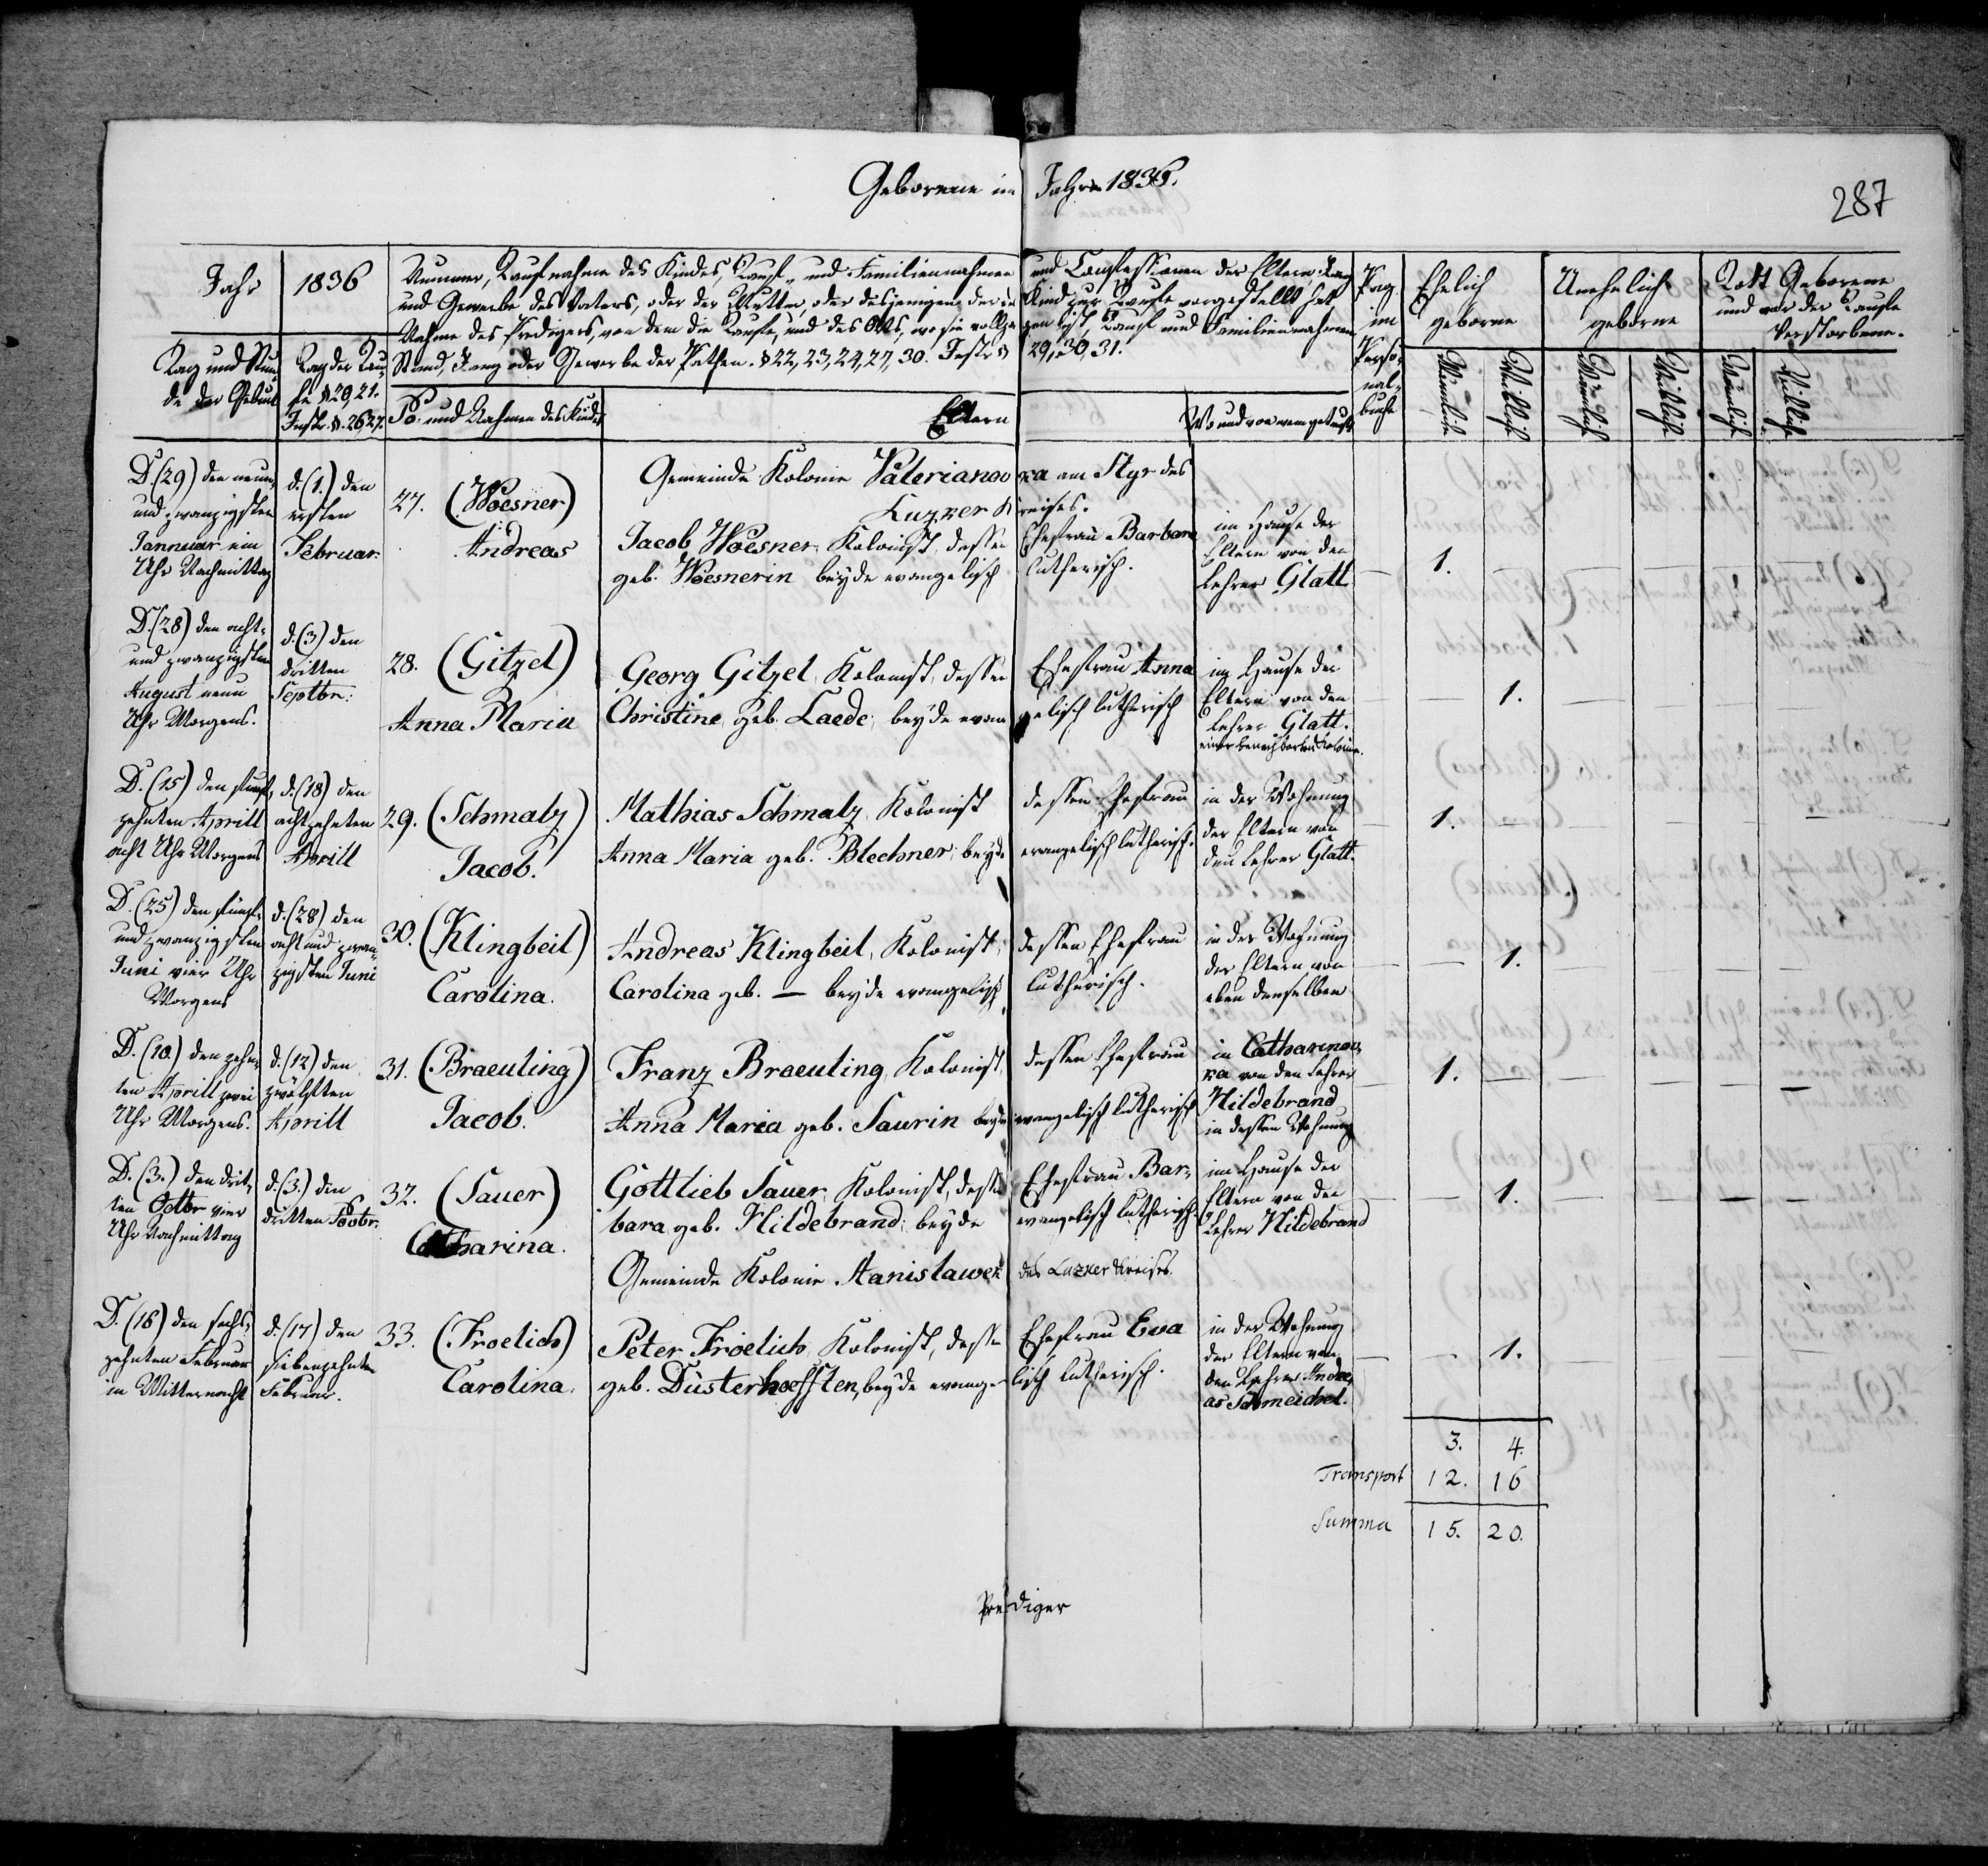 Geborene im Jahre 1836.
287
Jahr 1836
Nummer, Taufnahme des Kindes, Tauf- und Familiennahmen und Confessionen der Eltern, Rang
und Gewerbe des Vaters, oder der Mutter, oder desjenigen der das Kind zur Taufe vorgestellt hat
Nahme des Predigers, von dem die Taufe, und des Orts, wo sie vollzogen ist, Tauf und Familiennahmen
Stand, Rang oder Gewerbe der Pathen. § 22, 23, 24, 27, 30. Instr. § 29, 30, 31.
Tag und Stun-
de der Geburt
Tag der Tau-
fe § 20, 21.
Instr. § 26, 27.
No und Nahmen des Kindes
Eltern
Wo und von wem getauft
Pag.
im
Perso-
nal-
buche
Ehelich
geborne
Unehelich
geborne
Todt Geborene
und vor der Taufe
Verstorbene.
Männlich
Weiblich
Männlich
Weiblich
Männlich
Weiblich
Gemeinde Kolonie Valerianowka am Styr des
Luzker Kreises.
D. (29) den neun-
und zwanzigsten
Jannuar ein
Uhr Nachmittag
d. (1.) den
ersten
Februar.
27. (Woesner)
Andreas
Jacob Woesner, Kolonist, dessen Ehefrau Barbara
geb. Woesnerin beyde evangelisch lutherisch.
im Hause der
Eltern von den
Lehrer Glatt
1.
D. (28) den acht-
und zwanzigsten
August neun
Uhr Morgens.
d. (3) den
dritten
Septbr:
28. (Gitzel)
Anna Maria
Georg Gitzel, Kolonist, dessen Ehefrau Anna
Christine, geb. Laede, beyde evangelisch lutherisch
im Hause der
Eltern von den
Lehrer Glatt.
einer benachbarten Kolonie.
1.
D. (15) den funf-
zehnten Aprill
acht Uhr Morgens
d. (18) den
achtzehnten
Aprill
29. (Schmalz)
Jacob.
Mathias Schmalz, Kolonist dessen Ehefrau
Anna Maria geb. Blechner, beyde evangelisch lutherisch.
in der Wohnung
der Eltern von
den Lehrer Glatt.
1.
D. (25) den fünf-
und zwanzigsten
Juni vier Uhr
Morgens
d. (28) den
acht und zwan-
zigsten Juni
30. (Klingbeil)
Carolina.
Andreas Klingbeil, Kolonist, dessen Ehefrau
Carolina geb. — beyde evangelisch lutherisch.
in der Wohnung
der Eltern von
eben denselben
1.
D. (10.) den zehn-
ten Aprill zwei
Uhr Morgens.
d. (12) den
zwölften
Aprill
31. (Braeuling)
Jacob.
Franz Braeuling, Kolonist, dessen Ehefrau
Anna Maria geb. Saurin beyde evangelisch lutherisch
in Catharinow-
ka von den Lehrer
Hildebrand
in dessen Wohnung
1.
D. (3.) den drit-
ten Octbr vier
Uhr Nachmittag
d. (3.) den
dritten
32. (Sauer)
Catharina.
Gottlieb Sauer, Kolonist, dessen Ehefrau Bar-
bara geb. Hildebrand, beyde evangelisch lutherisch.
im Hause der
Eltern von den
Lehrer Hildebrand
1.
Gemeinde Kolonie Stanislawek des Luzker Kreises.
D. (16) den sechs-
zehnten Februar
in Mitternacht
d. (17) den
siebenzehnten
Februar.
33. (Froelich)
Carolina.
Peter Froelich, Kolonist, dessen Ehefrau Eva
geb. Düsterhoefften, beyde evangelisch lutherisch.
in der Wohnung
der Eltern von
den Lehrer Andre-
as Schmeichel.
1.
3. 4.
Transport 12. 16
Summa 15. 20.
Prediger